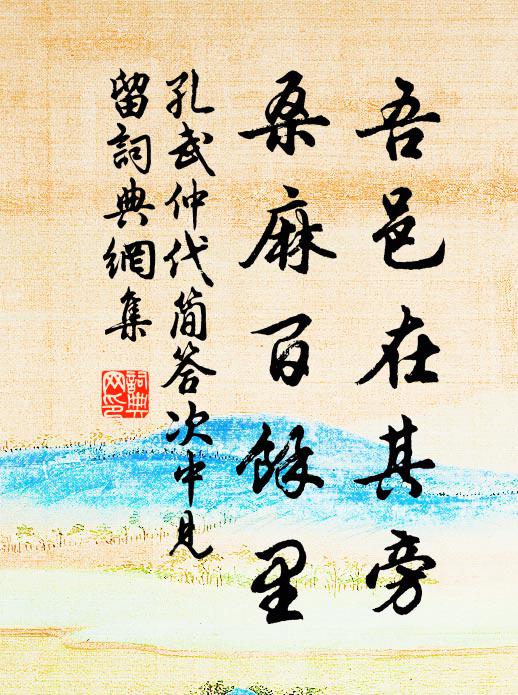 吾邑在其旁
桑麻百餘里
孔武仲代简答次中見
留詞典網集
詞典
网印